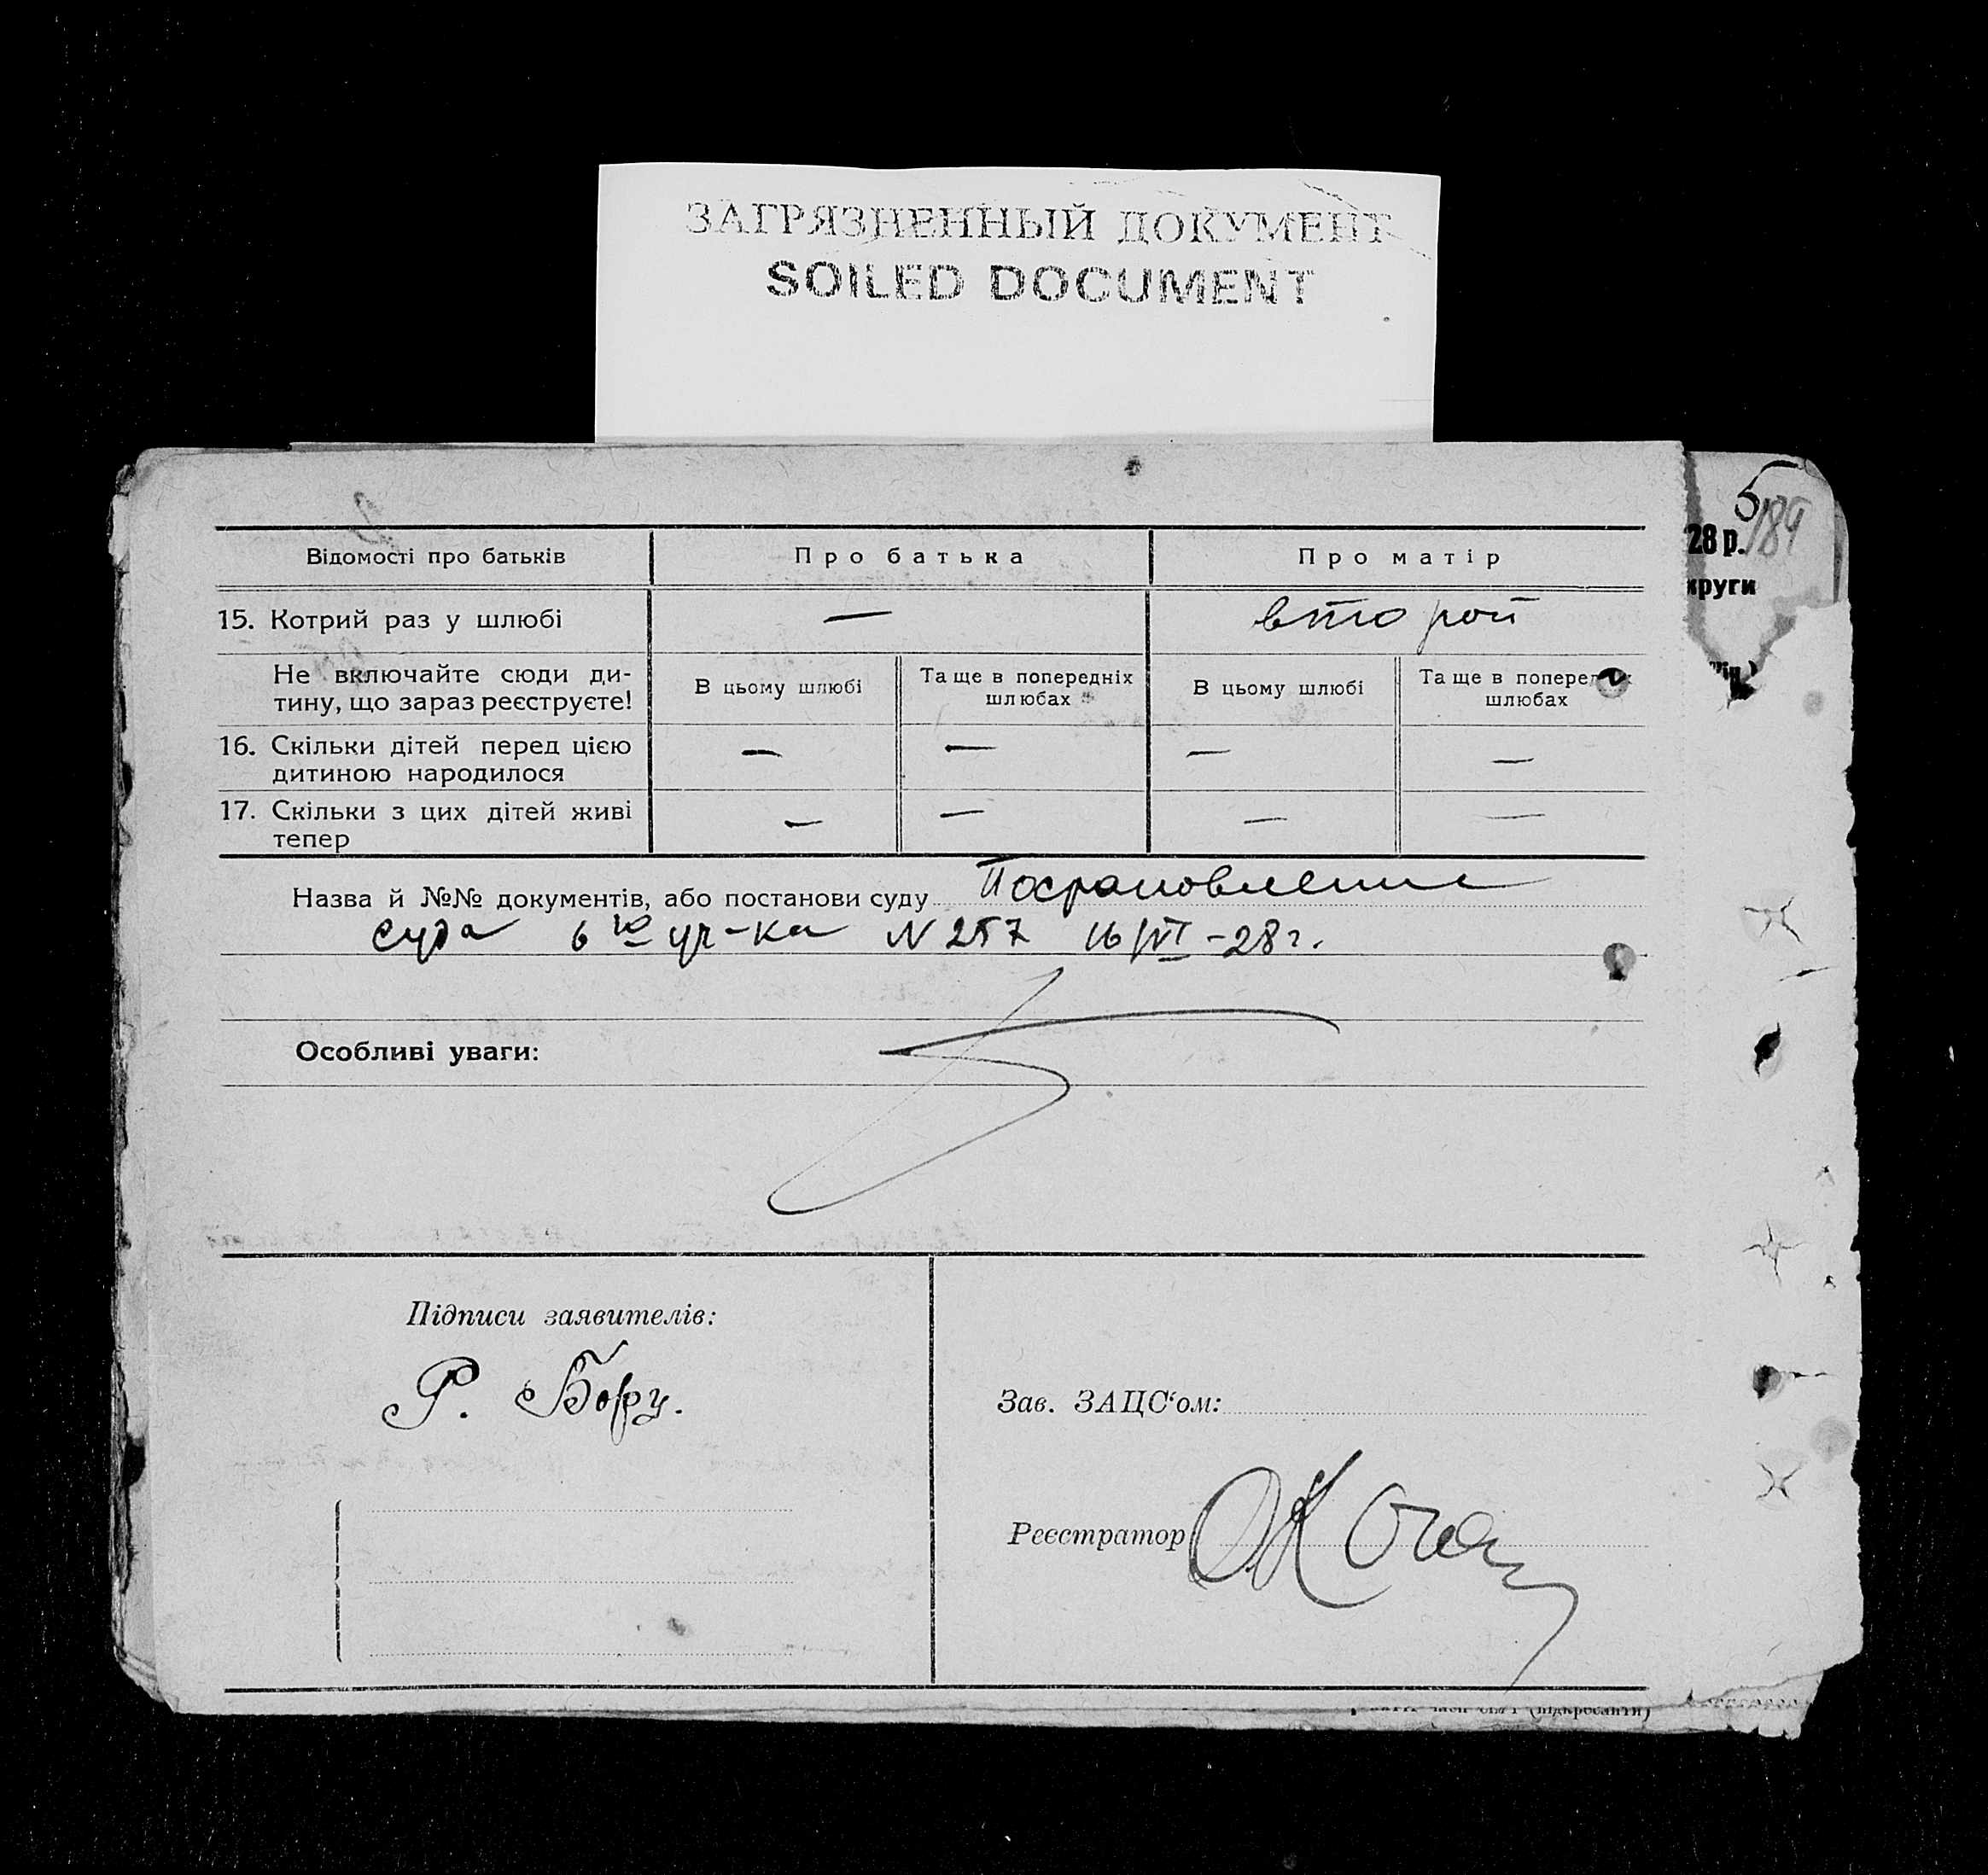 ЗАГРЯЗНЕННЫЙ ДОКУМЕНТ
SOILED DOCUMENT
5
189
28 р.
круги
Відомості про батьків
Про батька
Про матір
15. Котрий раз у шлюбі
—
второй
Не включайте сюди ди-
тину, що зараз реєструєте!
В цьому шлюбі
Та ще в попередніх
шлюбах
В цьому шлюбі
Та ще в поперед
шлюбах
16. Скільки дітей перед цією
дитиною народилося
— — — —
17. Скільки з цих дітей живі
тепер
— — — —
Назва й №№ документів, або постанови суду Постановление
суда 6 го уч-ка N 257 16/VI-28 г.
Особливі уваги:
Підписи заявителів:
Р.
Зав. ЗАЦС‘ом:
Реєстратор
(підкреслити)